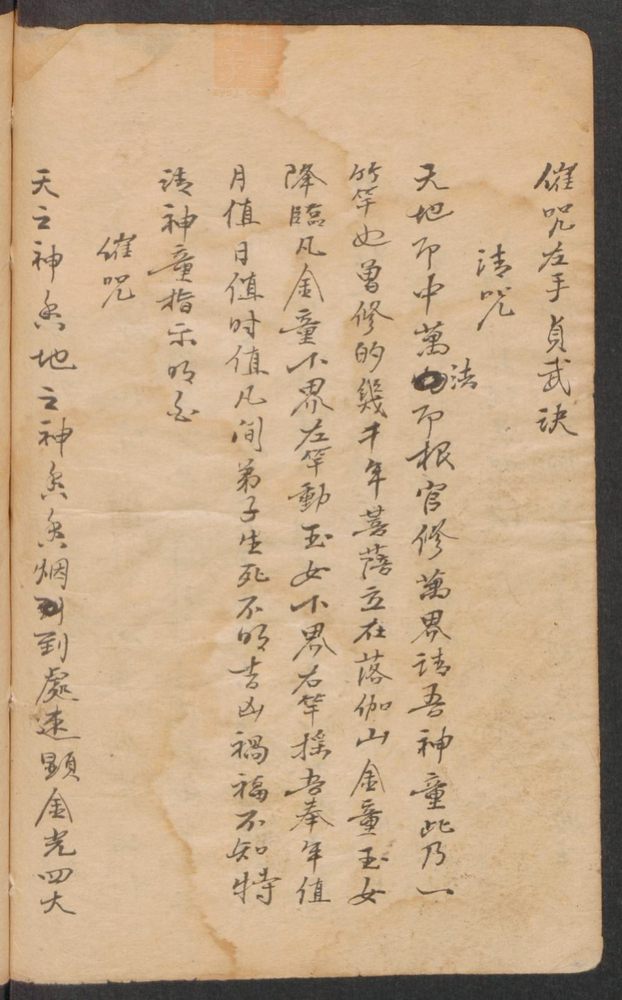 催咒左手貞武訣
請咒
天地而中萬法而根官修萬界請吾神童此乃一
竹竿也曾修的幾千年菩薩立在落伽山金童玉女
降臨凡金童下界左竿動玉女下界右竿搖吾奉年值
月值日值时值凡间弟子生死不明吉凶禍福不知特
請神童指示明白
催咒
天之神香地之神香香烟到處速顕金光四大